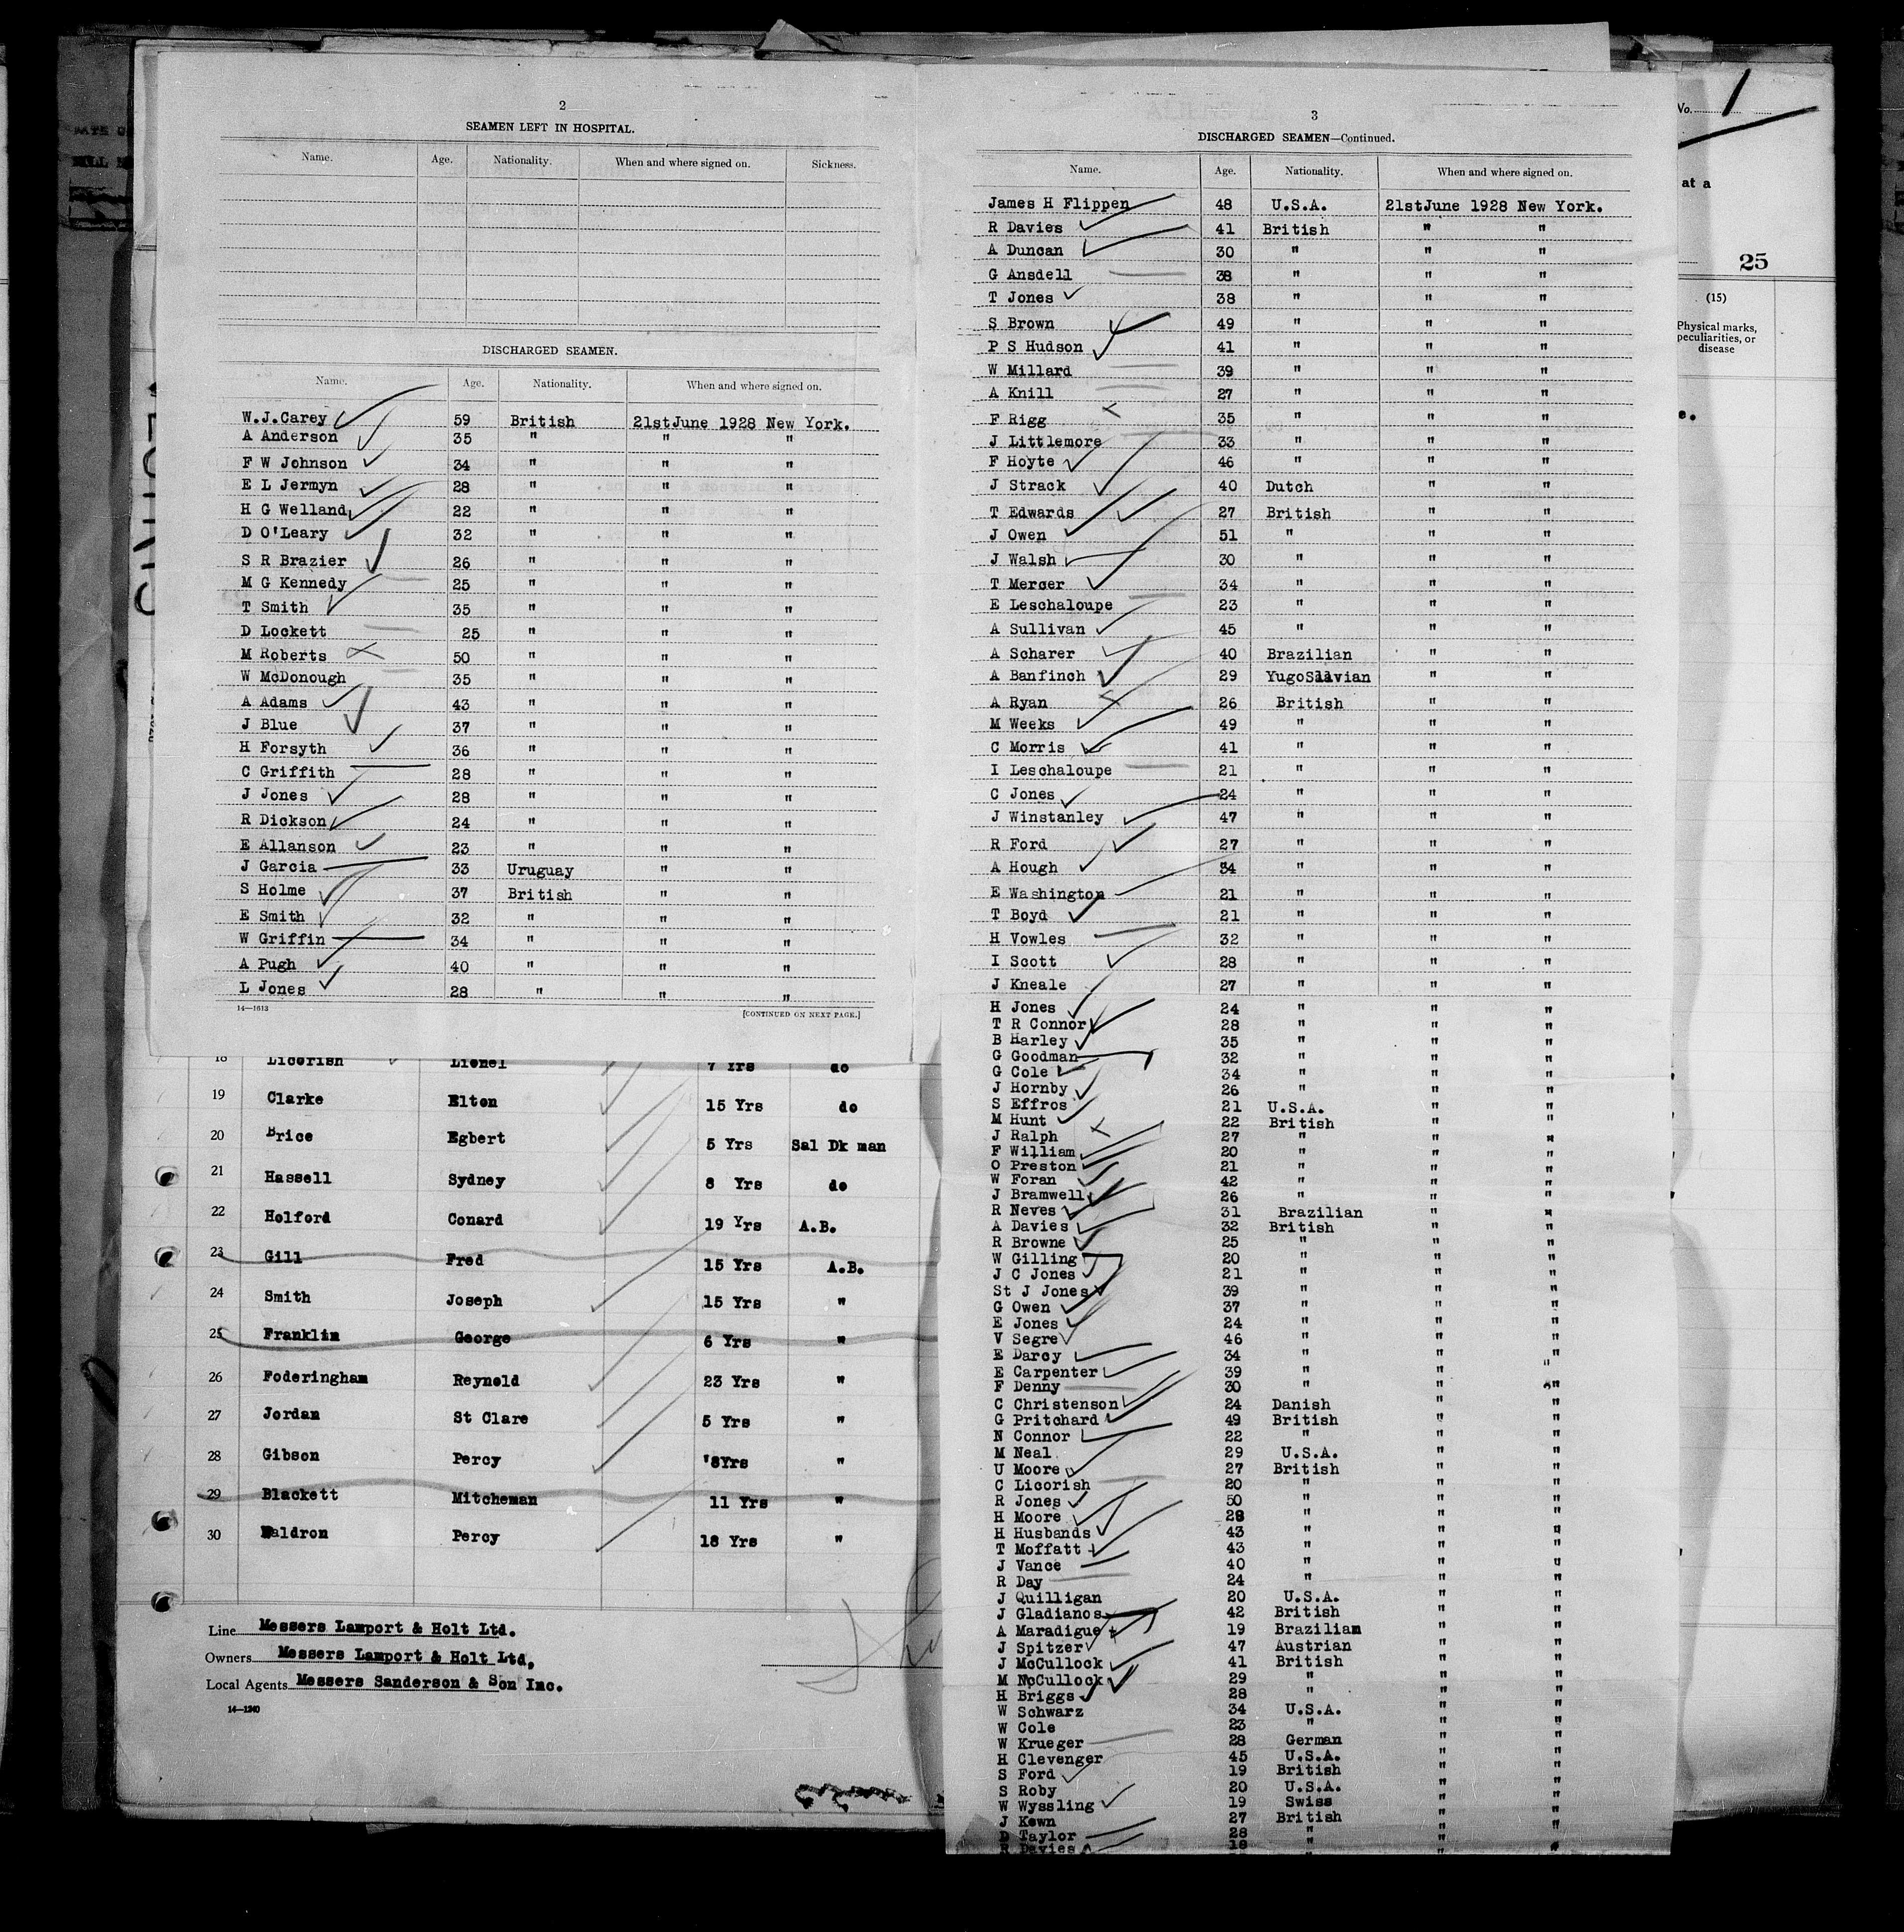 2
SEAMEN LEFT IN HOSPITAL.
Name. Age. Nationality. When and where signed on. Sickness.
DISCHARGED SEAMEN.
Name. Age. Nationality. When and where signed on.
W.J.Carey 59 British 21stJune 1928 New York.
A Anderson 35 " " "
F W Johnson 34 " " "
E L Jermyn 28 " " "
H G Welland 22 " " "
D O'Leary 32 " " "
S R Brazier 26 " " "
M G Kennedy 25 " " "
T Smith 35 " " "
D Lockett 25 " " "
M Roberts 50 " " "
W McDonough 35 " " "
A Adams 43 " " "
J Blue 37 " " "
H Forsyth 36 " " "
C Griffith 28 " " "
J Jones 28 " " "
R Dickson 24 " " "
E Allanson 23 " " "
J Garcia 33 Uruguay " "
S Holme 37 British " "
E Smith 32 " " "
W Griffin 34 " " "
A Pugh 40 " " "
L Jones 28 " " "
14—1613 [CONTINUED ON NEXT PAGE.]
18 Licorish Lionel 7 Yrs do
19 Clarke Elton 15 Yrs do
20 Brice Egbert 5 Yrs Sal Dk man
21 Hassell Sydney 8 Yrs do
22 Holford Conard 19 Yrs A.B.
23 Gill Fred 15 Yrs A.B.
24 Smith Joseph 15 Yrs "
25 Franklin George 6 Yrs "
26 Foderingham Reynold 23 Yrs "
27 Jordan St Clare 5 Yrs "
28 Gibson Percy '8Yrs "
29 Blackett Mitcheman 11 Yrs "
30 Waldron Percy 18 Yrs "
Line Messers Lamport & Holt Ltd.
Owners Messers Lamport & Holt Ltd,
Local Agents Messers Sanderson & Son Inc.
14—1240
3
DISCHARGED SEAMEN—Continued.
Name. Age. Nationality. When and where signed on.
James H Flippen 48 U.S.A. 21stJune 1928 New York.
R Davies 41 British " "
A Duncan 30 " " "
G Ansdell 38 " " "
T Jones 38 " " "
S Brown 49 " " "
P S Hudson 41 " " "
W Millard 39 " " "
A Knill 27 " " "
F Rigg 35 " " "
J Littlemore 33 " " "
F Hoyte 46 " " "
J Strack 40 Dutch " "
T Edwards 27 British " "
J Owen 51 " " "
J Walsh 30 " " "
T Mercer 34 " " "
E Leschaloupe 23 " " "
A Sullivan 45 " " "
A Scharer 40 Brazilian " "
A Banfinch 29 YugoSlavian " "
A Ryan 26 British " "
M Weeks 49 " " "
C Morris 41 " " "
I Leschaloupe 21 " " "
C Jones 24 " " "
J Winstanley 47 " " "
R Ford 27 " " "
A Hough 34 " " "
E Washington 21 " " "
T Boyd 21 " " "
H Vowles 32 " " "
I Scott 28 " " "
J Kneale 27 " " "
H Jones 24 " " "
T R Connor 28 " " "
B Harley 35 " " "
G Goodman 32 " " "
G Cole 34 " " "
J Hornby 26 " " "
S Effros 21 U.S.A. " "
M Hunt 22 British " "
J Ralph 27 " " "
F William 20 " " "
O Preston 21 " " "
W Foran 42 " " "
J Bramwell 26 " " "
R Neves 31 Brazilian " "
A Davies 32 British " "
R Browne 25 " " "
W Gilling 20 " " "
J C Jones 21 " " "
St J Jones 39 " " "
G Owen 37 " " "
E Jones 24 " " "
V Segre 46 " " "
E Darcy 34 " " "
E Carpenter 39 " " "
F Denny 30 " " "
C Christenson 24 Danish " "
G Pritchard 49 British " "
N Connor 22 " " "
M Neal 29 U.S.A. " "
U Moore 27 British " "
C Licorish 20 " " "
R Jones 50 " " "
H Moore 28 " " "
H Husbands 43 " " "
T Moffatt 43 " " "
J Vance 40 " " "
R Day 24 " " "
J Quilligan 20 U.S.A. " "
J Gladianos 42 British " "
A Maradigue 19 Brazilian " "
J Spitzer 47 Austrian " "
J McCullock 41 British " "
M McCullock 29 " " "
H Briggs 28 " " "
W Schwarz 34 U.S.A. " "
W Cole 23 " " "
W Krueger 28 German " "
H Clevenger 45 U.S.A. " "
S Ford 19 British " "
S Roby 20 U.S.A. " "
W Wyssling 19 Swiss " "
J Kewn 27 British " "
D Taylor 28 " " "
R Davies 18 " " "
No. 1
at a
25
(15)
Physical marks,
peculiarities, or
disease